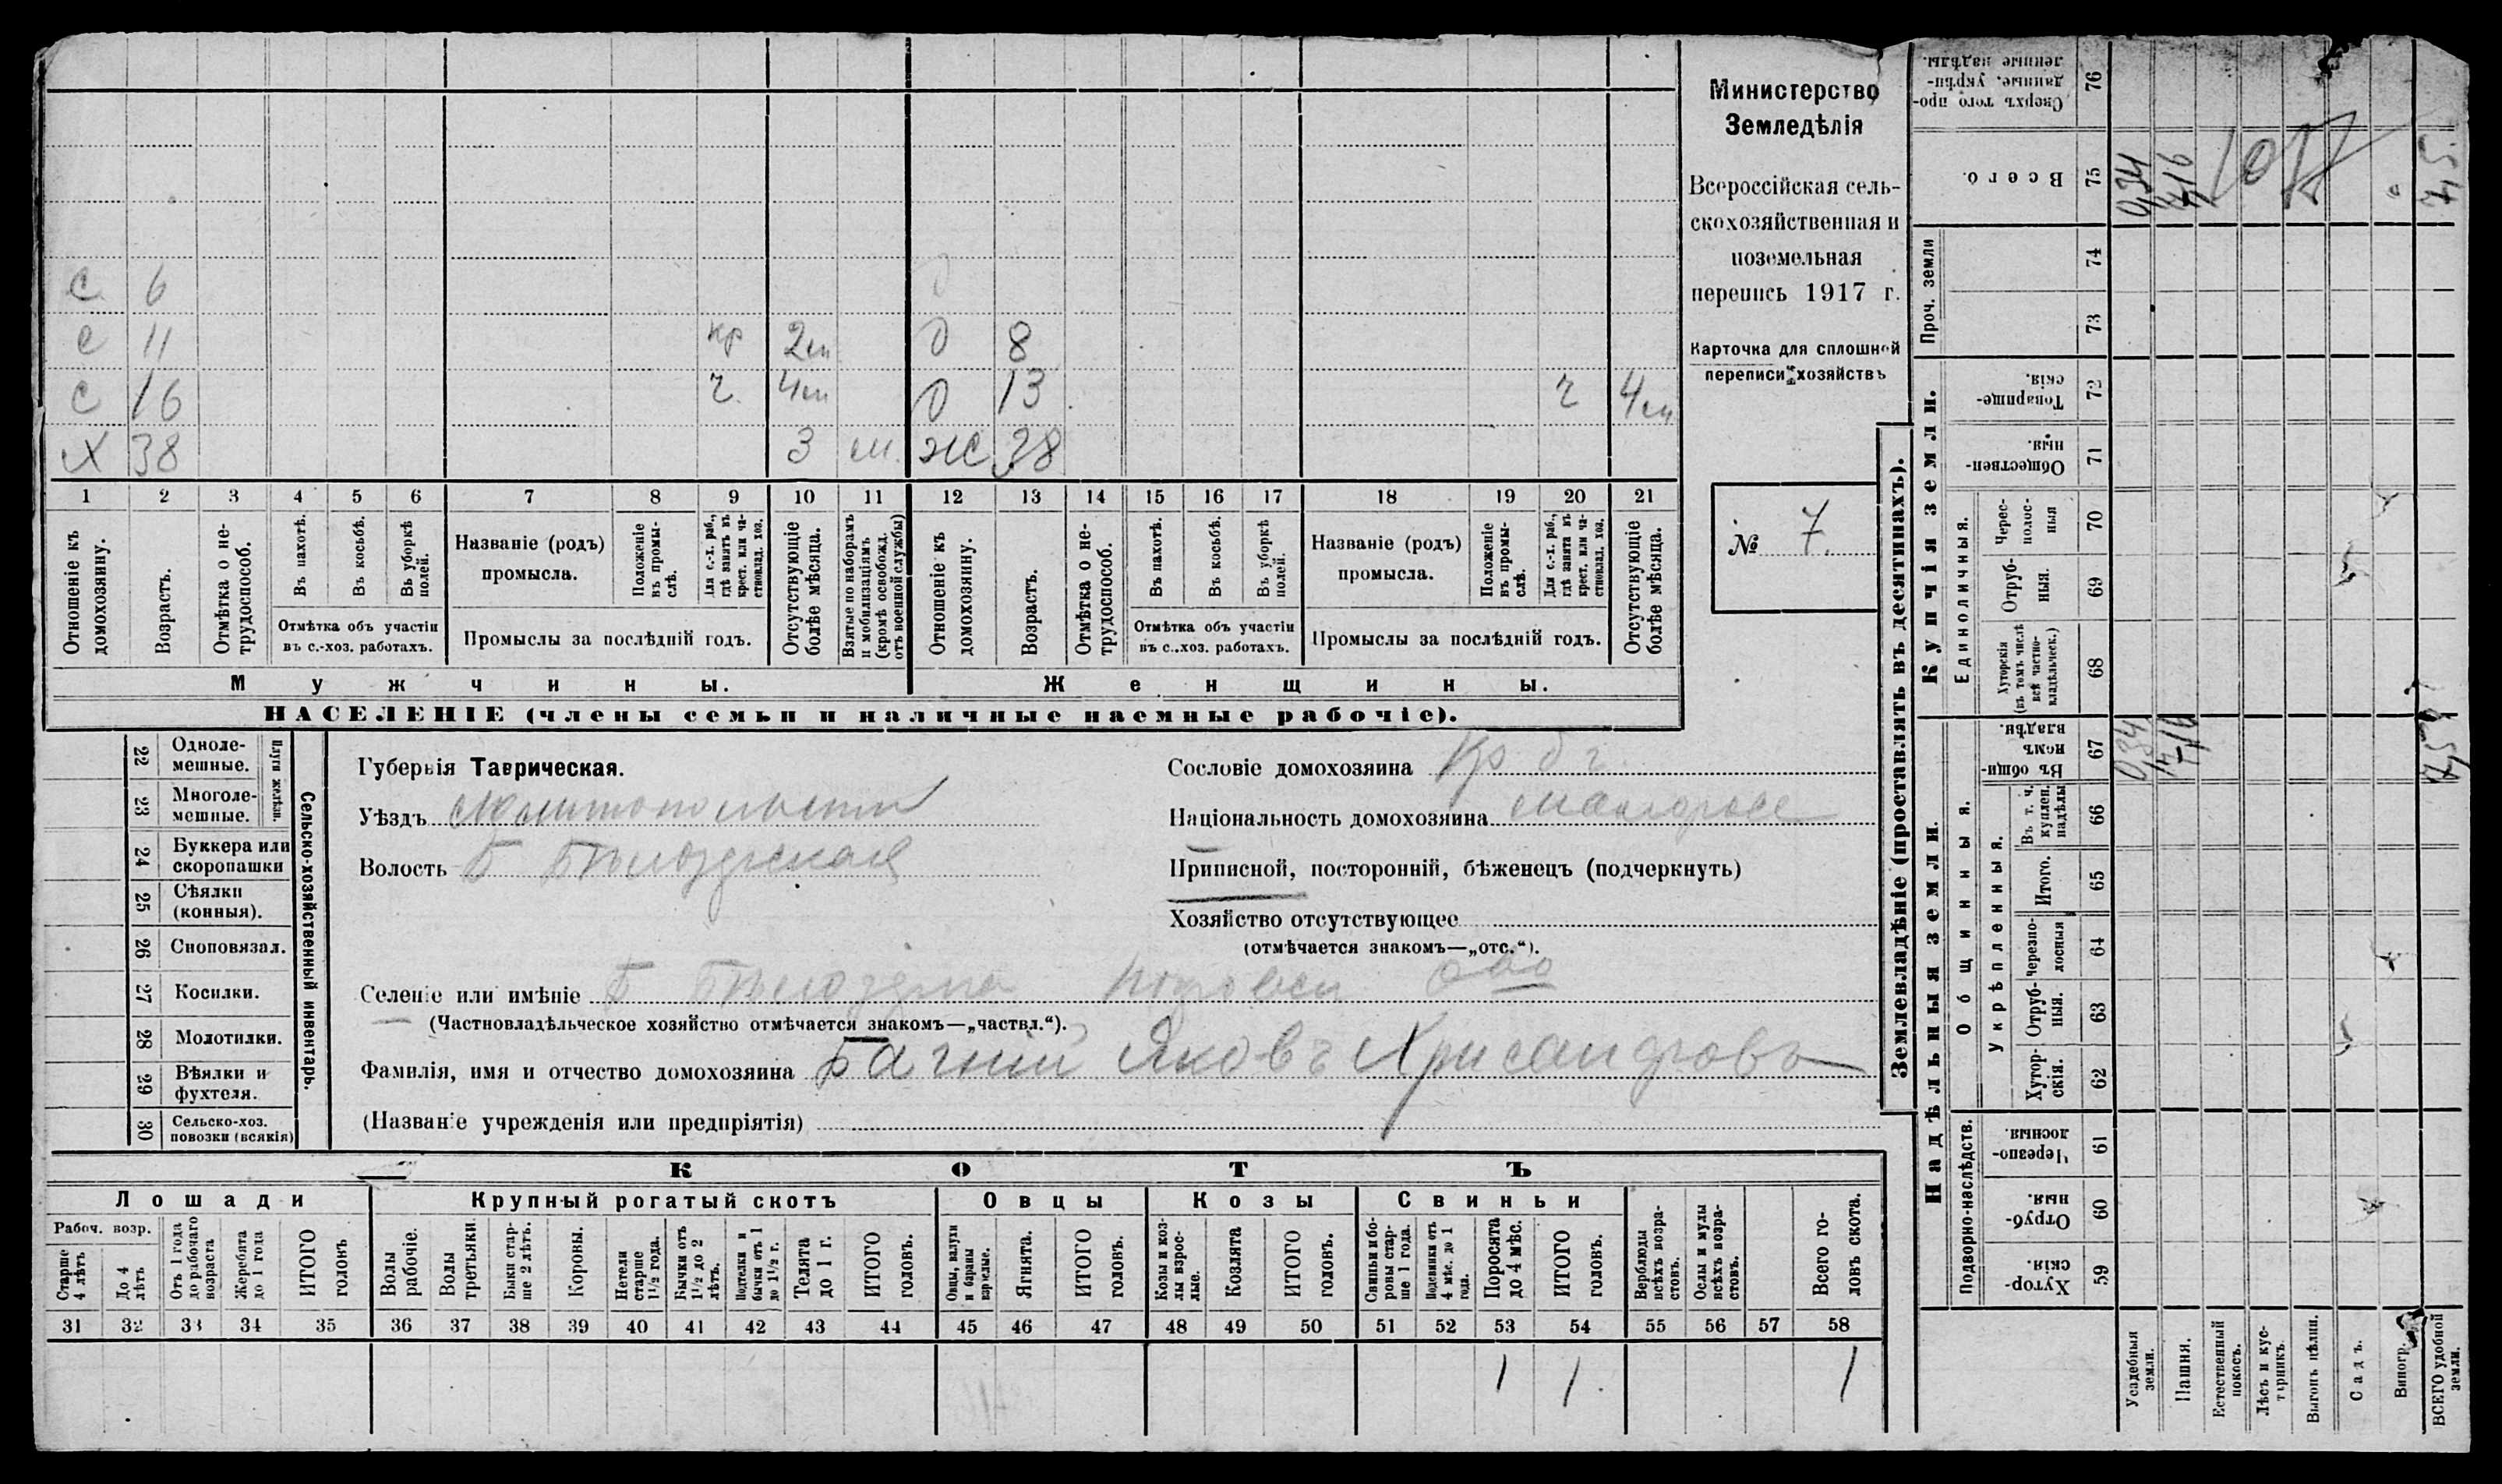 с 6
с 11 кр 2м д 8
с 16 ч. 4м д 13 ч 4м
х 38 3 м. ж 38
1 2 3 4 5 6 7 8 9 10 11 12 13 14 15 16 17 18 19 20 21
Отношеніе къ домохозяину.
Возрастъ.
Отмѣтка о не-трудоспособ.
Въ пахотѣ.
Въ косьбѣ.
Въ уборкѣ полей.
Отмѣтка объ участіи
въ с.-хоз. работахъ.
Названіе (родъ)
промысла.
Положеніе въ промы-слѣ.
Для с.-х. раб., гдѣ занятъ въ крест. или ча-стновлад. хоз.
Промыслы за послѣдній годъ.
Отсутствующіе болѣе мѣсяца.
Взятые по наборамъ и мобилизаціямъ (кромѣ освобожд. отъ военной службы)
Отношеніе къ домохозяину.
Возрастъ.
Отмѣтка о не-трудоспособ.
Въ пахотѣ.
Въ косьбѣ.
Въ уборкѣ полей.
Отмѣтка объ участіи
въ с.-хоз. работахъ.
Названіе (родъ)
промысла.
Положеніе въ промы-слѣ.
Для с.-х. раб., гдѣ занята въ крест. или ча-стновлад. хоз.
Промыслы за послѣдній годъ.
Отсутствующіе болѣе мѣсяца.
Мужчины. Женщины.
НАСЕЛЕНІЕ (члены семьи и наличные наемные рабочіе).
Министерство
Земледѣлія
Всероссійская сель-
скохозяйственная и
поземельная
перепись 1917 г.
Карточка для сплошной
переписи хозяйствъ
№ 7.
22 Одноле-мешные.
23 Многоле-мешные.
Плуги желѣзн.
24 Буккера или скоропашки
25 Сѣялки (конныя).
26 Сноповязал.
27 Косилки.
28 Молотилки.
29 Вѣялки и фухтеля.
30 Сельско-хоз. повозки (всякія)
Сельско-хозяйственный инвентарь.
Губернія Таврическая.
Уѣздъ Мелитопольскій
Волость Б Бѣлозерская
Сословіе домохозяина Кр
Національность домохозяина малоросс
Приписной, посторонній, бѣженецъ (подчеркнуть)
Хозяйство отсутствующее
(отмѣчается знакомъ—„отс.“).
Селеніе или имѣніе Б Бѣлозерка
(Частновладѣльческое хозяйство отмѣчается знакомъ—„частвл.“).
Фамилія, имя и отчество домохозяина Багний Яковъ Хрисандровъ
(Названіе учрежденія или предпріятія)
СКОТЪ
Лошади
Рабоч. возр.
Старше 4 лѣтъ
До 4 лѣтъ
Отъ 1 года до рабочаго возраста
Жеребята до 1 года
ИТОГО головъ
Крупный рогатый скотъ
Волы рабочіе.
Волы третьяки.
Быки стар-ше 2 лѣтъ.
Коровы.
Нетели старше 1½ года.
Бычки отъ 1½ до 2 лѣтъ.
Подтелки и бычки отъ 1 до 1½ г.
Телята до 1 г.
ИТОГО головъ.
Овцы
Овцы, валухи и бараны взрослые.
Ягнята.
ИТОГО головъ.
Козы
Козы и коз-лы взрос-лые.
Козлята
ИТОГО головъ.
Свиньи
Свиньи и бо-ровы стар-ше 1 года.
Подсвинки отъ 4 мѣс. до 1 года.
Поросята до 4 мѣс.
ИТОГО головъ.
Верблюды всѣхъ возра-стовъ.
Ослы и мулы всѣхъ возра-стовъ.
Всего го-ловъ скота.
31 32 33 34 35 36 37 38 39 40 41 42 43 44 45 46 47 48 49 50 51 52 53 54 55 56 57 58
1 1. 1
Землевладѣніе (проставлять въ десятинахъ).
Сверхъ того про-данные, укрѣп-ленные надѣлы. 76
Всего. 75 0,34 7,16 7,5.
Проч. земли 74 73
Купчія земли.
Товарище-скія. 72
Обществен-ныя. 71
Единоличныя.
Черес-полос-ныя 70
Отруб-ныя. 69
Хуторскія (въ томъ числѣ всѣ частно-владѣльческ.) 68
Надѣльныя земли.
Общинныя.
Въ общин-номъ владѣн. 67 0,34 7,16 7,5
Укрѣпленныя.
Въ т. ч. куплен. надѣлы 66
Итого. 65
Черезпо-лосныя 64
Отруб-ныя. 63
Хутор-скія. 62
Подворно-наслѣдств.
Черезпо-лосныя. 61
Отруб-ныя. 60
Хутор-скія. 59
Усадебныя земли.
Пашня.
Естественный покосъ.
Лѣсъ и кус-тарникъ.
Выгонъ цѣлин.
Садъ.
Виногр.
ВСЕГО удобной земли.